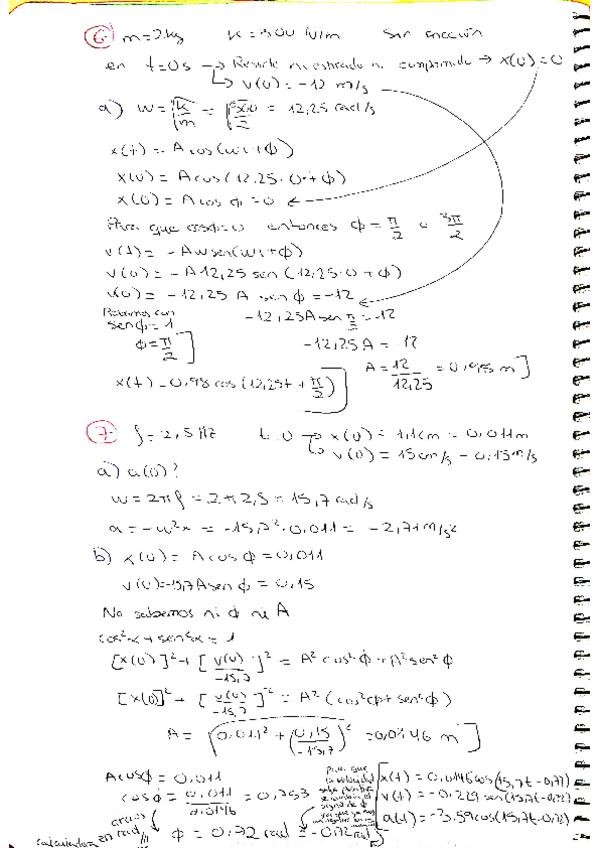 6. m=2kg K=300 N/m Sin fricción
en t=0s → Resorte ni estirado ni comprimido → x(0)=0
↳ v(0)=-12 m/s
a) w=√(K/m) = √(300/2) = 12,25 rad/s
x(t) = A cos(wt+ϕ)
x(0) = A cos(12,25·0+ϕ)
x(0) = A cos ϕ = 0
Para que cosϕ=0 entonces ϕ = π/2 o 3π/2
v(t) = -Aw sen(wt+ϕ)
v(0) = -A 12,25 sen (12,25·0+ϕ)
v(0) = -12,25 A sen ϕ = -12
senϕ=1
-12,25A sen π/2 = -12
ϕ=π/2]
-12,25A = -12
A = 12/12,25 = 0,98 m]
x(t) = 0,98 cos (12,25t + π/2)]
7. f = 2,5 Hz t=0 → x(0) = 1,1cm = 0,011m
↳ v(0) = 15cm/s = 0,15m/s
a) a(0)?
w = 2πf = 2π2,5 = 15,7 rad/s
a = -w²x = -15,7²·0,011 = -2,71m/s²
b) x(0) = A cos ϕ = 0,011
v(0) = -15,7A sen ϕ = 0,15
No sabemos ni ϕ ni A
cos²α + sen²α = 1
[x(0)]² + [v(0)/-15,7]² = A² cos²ϕ + A² sen²ϕ
[x(0)]² + [v(0)/-15,7]² = A² (cos²ϕ + sen²ϕ)
A = √(0,011² + (0,15/-15,7)²) = 0,0146 m]
A cosϕ = 0,011
cosϕ = 0,011/0,0146 = 0,753
Para que la velocidad
x(t) = 0,0146cos(15,7t-0,72)
v(t) = -0,229 sen(15,7t-0,72)
a(t) = -3,59cos(15,7t-0,72)
calculadora en rad
ϕ = 0,72 rad = -0,72 rad]